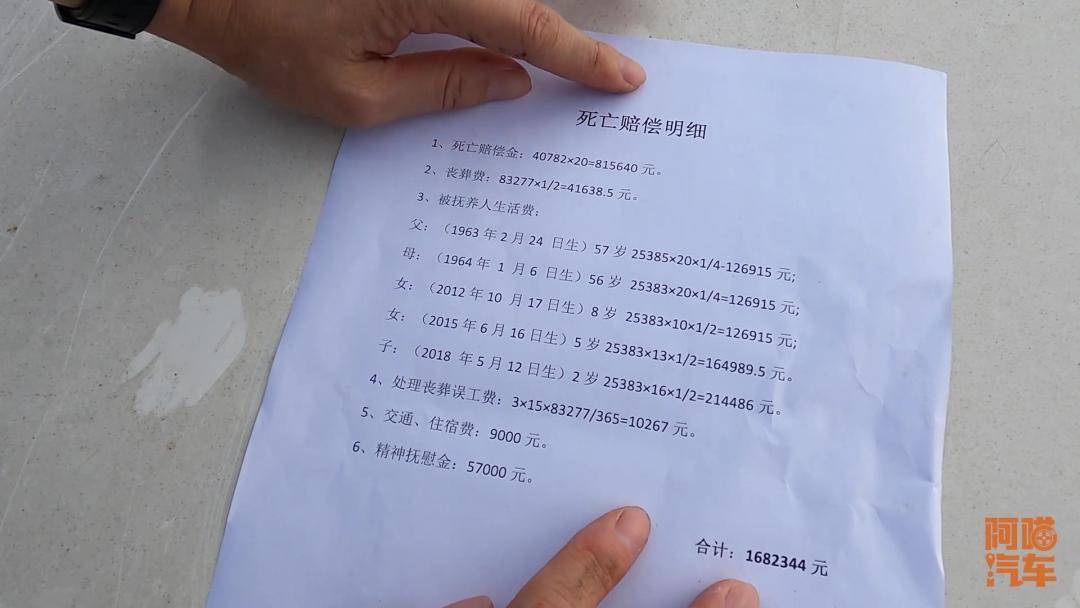 死亡赔偿明细
1、死亡赔偿金：40782×20=815640 元。
2、丧葬费：83277×1/2=41638.5 元。
3、被抚养人生活费；
父：（1963 年 2 月 24 日生）57 岁 25385×20×1/4-126915 元;
母：（1964 年 1 月 6 日生）56 岁 25383×20×1/4=126915 元;
女：（2012 年 10 月 17 日生）8 岁 25383×10×1/2=126915 元;
女：（2015 年 6 月 16 日生）5 岁 25383×13×1/2=164989.5 元。
子：（2018 年 5 月 12 日生）2 岁 25383×16×1/2=214486 元。
4、处理丧葬误工费：3×15×83277/365=10267 元。
5、交通、住宿费：9000 元。
6、精神抚慰金：57000 元。
合计：1682344 元
阿喵
汽车